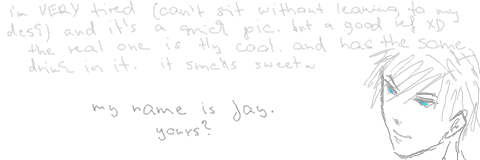 i'm VERY tired (can't sit without leaning to my
desk) and it's a quick pic. but a good ref XD
the real one is fly cool. and has the same
drink in it. it smells sweet~
my name is Jay.
yours?